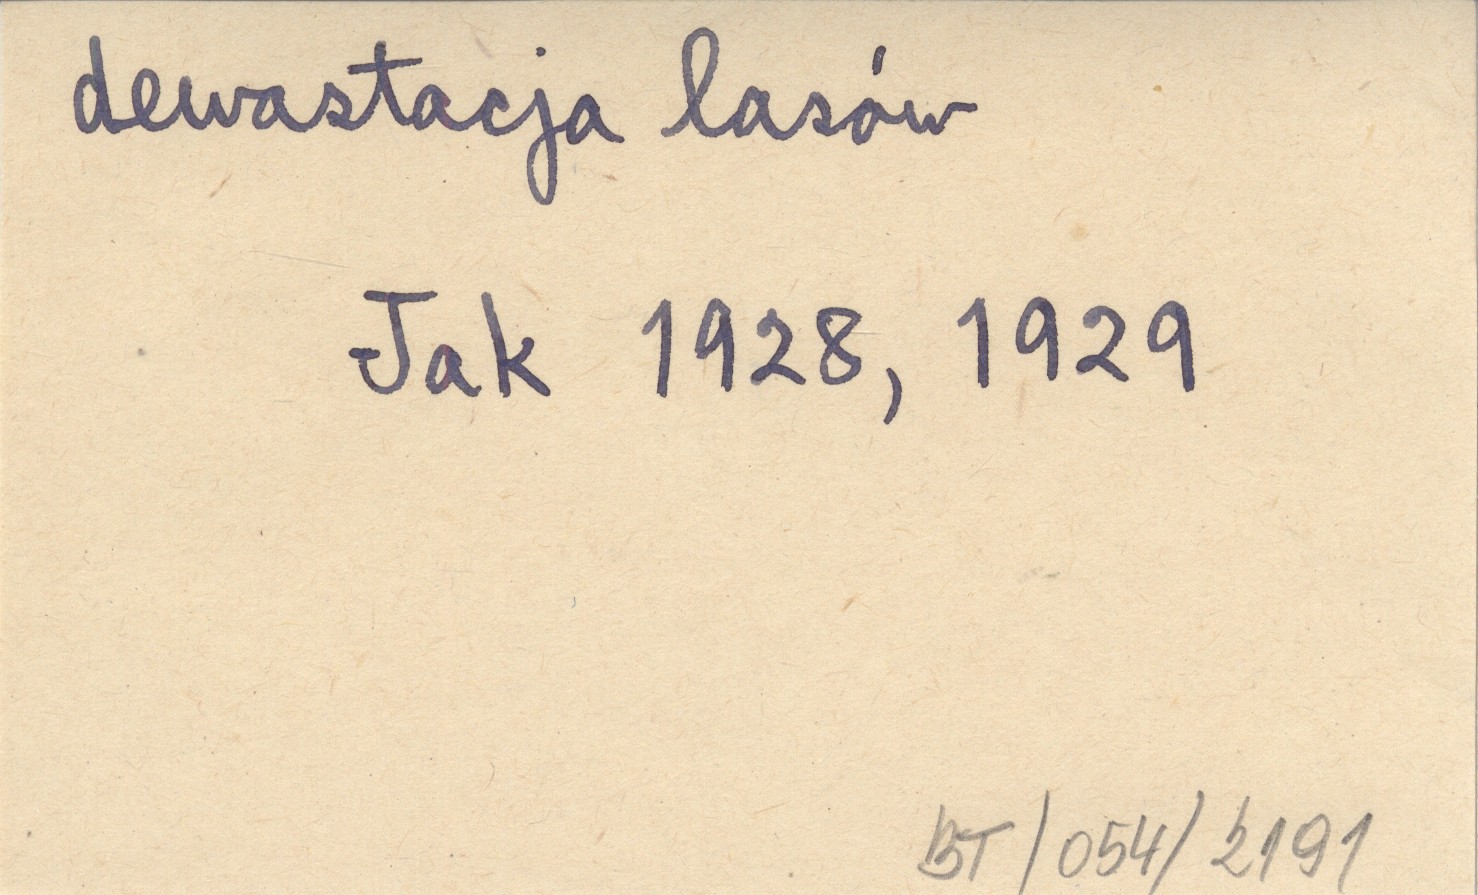 dewastacja lasów
Jak 1928, 1929
BT/054/2191